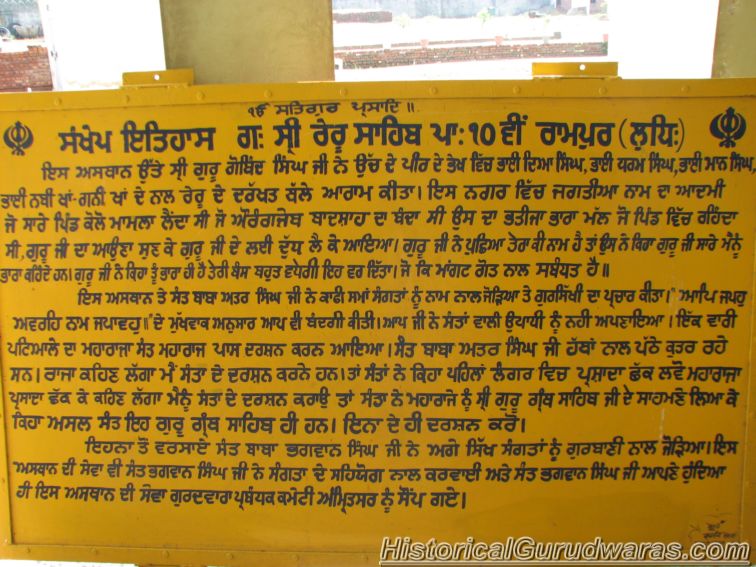 ੴ ਸਤਿਗੁਰ ਪ੍ਰਸਾਦਿ॥
ਸੰਖੇਪ ਇਤਿਹਾਸ ਗ: ਸ੍ਰੀ ਰੇਰੂ ਸਾਹਿਬ ਪਾ: 10 ਵੀਂ ਰਾਮਪੁਰ (ਲੁਧਿ:)
ਇਸ ਅਸਥਾਨ ਉੱਤੇ ਸ੍ਰੀ ਗੁਰੂ ਗੋਬਿੰਦ ਸਿੰਘ ਜੀ ਨੇ ਉੱਚ ਦੇ ਪੀਰ ਦੇ ਭੇਖ ਵਿੱਚ ਭਾਈ ਦਇਆ ਸਿੰਘ, ਭਾਈ ਧਰਮ ਸਿੰਘ, ਭਾਈ ਮਾਨ ਸਿੰਘ,
ਭਾਈ ਨਬੀ ਖਾਂ-ਗਨੀ ਖਾਂ ਦੇ ਨਾਲ ਰੇਰੂ ਦੇ ਦਰੱਖਤ ਥੱਲੇ ਆਰਾਮ ਕੀਤਾ। ਇਸ ਨਗਰ ਵਿੱਚ ਜਗਤੀਆ ਨਾਮ ਦਾ ਆਦਮੀ
ਜੋ ਸਾਰੇ ਪਿੰਡ ਕੋਲੋ ਮਾਮਲਾ ਲੈਂਦਾ ਸੀ ਜੋ ਔਰੰਗਜੇਬ ਬਾਦਸ਼ਾਹ ਦਾ ਬੰਦਾ ਸੀ ਉਸ ਦਾ ਭਤੀਜਾ ਭਾਰਾ ਮੱਲ ਜੋ ਪਿੰਡ ਵਿੱਚ ਰਹਿੰਦਾ
ਸੀ, ਗੁਰੂ ਜੀ ਦਾ ਆਉਣਾ ਸੁਣ ਕੇ ਗੁਰੂ ਜੀ ਦੇ ਲਈ ਦੁੱਧ ਲੈ ਕੇ ਆਇਆ। ਗੁਰੂ ਜੀ ਨੇ ਪੁਛਿਆ ਤੇਰਾ ਕੀ ਨਾਮ ਹੈ ਤਾਂ ਉਸ ਨੇ ਕਿਹਾ ਗੁਰੂ ਜੀ ਸਾਰੇ ਮੈਨੂੰ
ਭਾਰਾ ਕਹਿੰਦੇ ਹਨ। ਗੁਰੂ ਜੀ ਨੇ ਕਿਹਾ ਤੂੰ ਭਾਰਾ ਹੀ ਹੈਂ ਤੇਰੀ ਬੰਸ ਬਹੁਤ ਵਧੇਗੀ ਇਹ ਵਰ ਦਿੱਤਾ। ਜੋ ਕਿ ਮਾਂਗਟ ਗੋਤ ਨਾਲ ਸਬੰਧਤ ਹੈ॥
ਇਸ ਅਸਥਾਨ ਤੇ ਸੰਤ ਬਾਬਾ ਅਤਰ ਸਿੰਘ ਜੀ ਨੇ ਕਾਫੀ ਸਮਾਂ ਸੰਗਤਾਂ ਨੂੰ ਨਾਮ ਨਾਲ ਜੋੜਿਆ ਤੇ ਗੁਰਸਿੱਖੀ ਦਾ ਪ੍ਰਚਾਰ ਕੀਤਾ। "ਆਪਿ ਜਪਹੁ
ਅਵਰਹਿ ਨਾਮ ਜਪਾਵਹੁ॥" ਦੇ ਮੁੱਖਵਾਕ ਅਨੁਸਾਰ ਆਪ ਵੀ ਬੰਦਗੀ ਕੀਤੀ। ਆਪ ਜੀ ਨੇ ਸੰਤਾਂ ਵਾਲੀ ਉਪਾਧੀ ਨੂੰ ਨਹੀ ਅਪਣਾਇਆ। ਇੱਕ ਵਾਰੀ
ਪਟਿਆਲੇ ਦਾ ਮਹਾਰਾਜਾ ਸੰਤ ਮਹਾਰਾਜ ਪਾਸ ਦਰਸ਼ਨ ਕਰਨ ਆਇਆ। ਸੰਤ ਬਾਬਾ ਅਤਰ ਸਿੰਘ ਜੀ ਹੱਥਾਂ ਨਾਲ ਪੱਠੇ ਕੁਤਰ ਰਹੇ
ਸਨ। ਰਾਜਾ ਕਹਿਣ ਲੱਗਾ ਮੈਂ ਸੰਤਾ ਦੇ ਦਰਸ਼ਨ ਕਰਨੇ ਹਨ। ਤਾਂ ਸੰਤਾਂ ਨੇ ਕਿਹਾ ਪਹਿਲਾਂ ਲੰਗਰ ਵਿਚ ਪ੍ਰਸ਼ਾਦਾ ਛੱਕ ਲਵੋ ਮਹਾਰਾਜਾ
ਪ੍ਰਸਾਦਾ ਛੱਕ ਕੇ ਕਹਿਣ ਲੱਗਾ ਮੈਨੂੰ ਸੰਤਾਂ ਦੇ ਦਰਸ਼ਨ ਕਰਾਉ ਤਾਂ ਸੰਤਾ ਨੇ ਮਹਾਰਾਜੇ ਨੂੰ ਸ੍ਰੀ ਗੁਰੂ ਗ੍ਰੰਥ ਸਾਹਿਬ ਜੀ ਦੇ ਸਾਹਮਣੇ ਲਿਆ ਕੇ
ਕਿਹਾ ਅਸਲ ਸੰਤ ਇਹ ਗੁਰੂ ਗ੍ਰੰਥ ਸਾਹਿਬ ਹੀ ਹਨ। ਇਨਾ ਦੇ ਹੀ ਦਰਸ਼ਨ ਕਰੋਂ।
ਇਹਨਾ ਤੋਂ ਵਰਸਾਏ ਸੰਤ ਬਾਬਾ ਭਗਵਾਨ ਸਿੰਘ ਜੀ ਨੇ ਅਗੇ ਸਿੱਖ ਸੰਗਤਾਂ ਨੂੰ ਗੁਰਬਾਣੀ ਨਾਲ ਜੋੜਿਆ। ਇਸ
ਅਸਥਾਨ ਦੀ ਸੇਵਾ ਵੀ ਸੰਤ ਭਗਵਾਨ ਸਿੰਘ ਜੀ ਨੇ ਸੰਗਤਾ ਦੇ ਸਹਿਯੋਗ ਨਾਲ ਕਰਵਾਈ ਅਤੇ ਸੰਤ ਭਗਵਾਨ ਸਿੰਘ ਜੀ ਆਪਣੇ ਹੁੰਦਿਆ
ਹੀ ਇਸ ਅਸਥਾਨ ਦੀ ਸੇਵਾ ਗੁਰਦਵਾਰਾ ਪ੍ਰਬੰਧਕ ਕਮੇਟੀ ਅੰਮ੍ਰਿਤਸਰ ਨੂੰ ਸੌਂਪ ਗਏ।
HistoricalGurudwaras.com